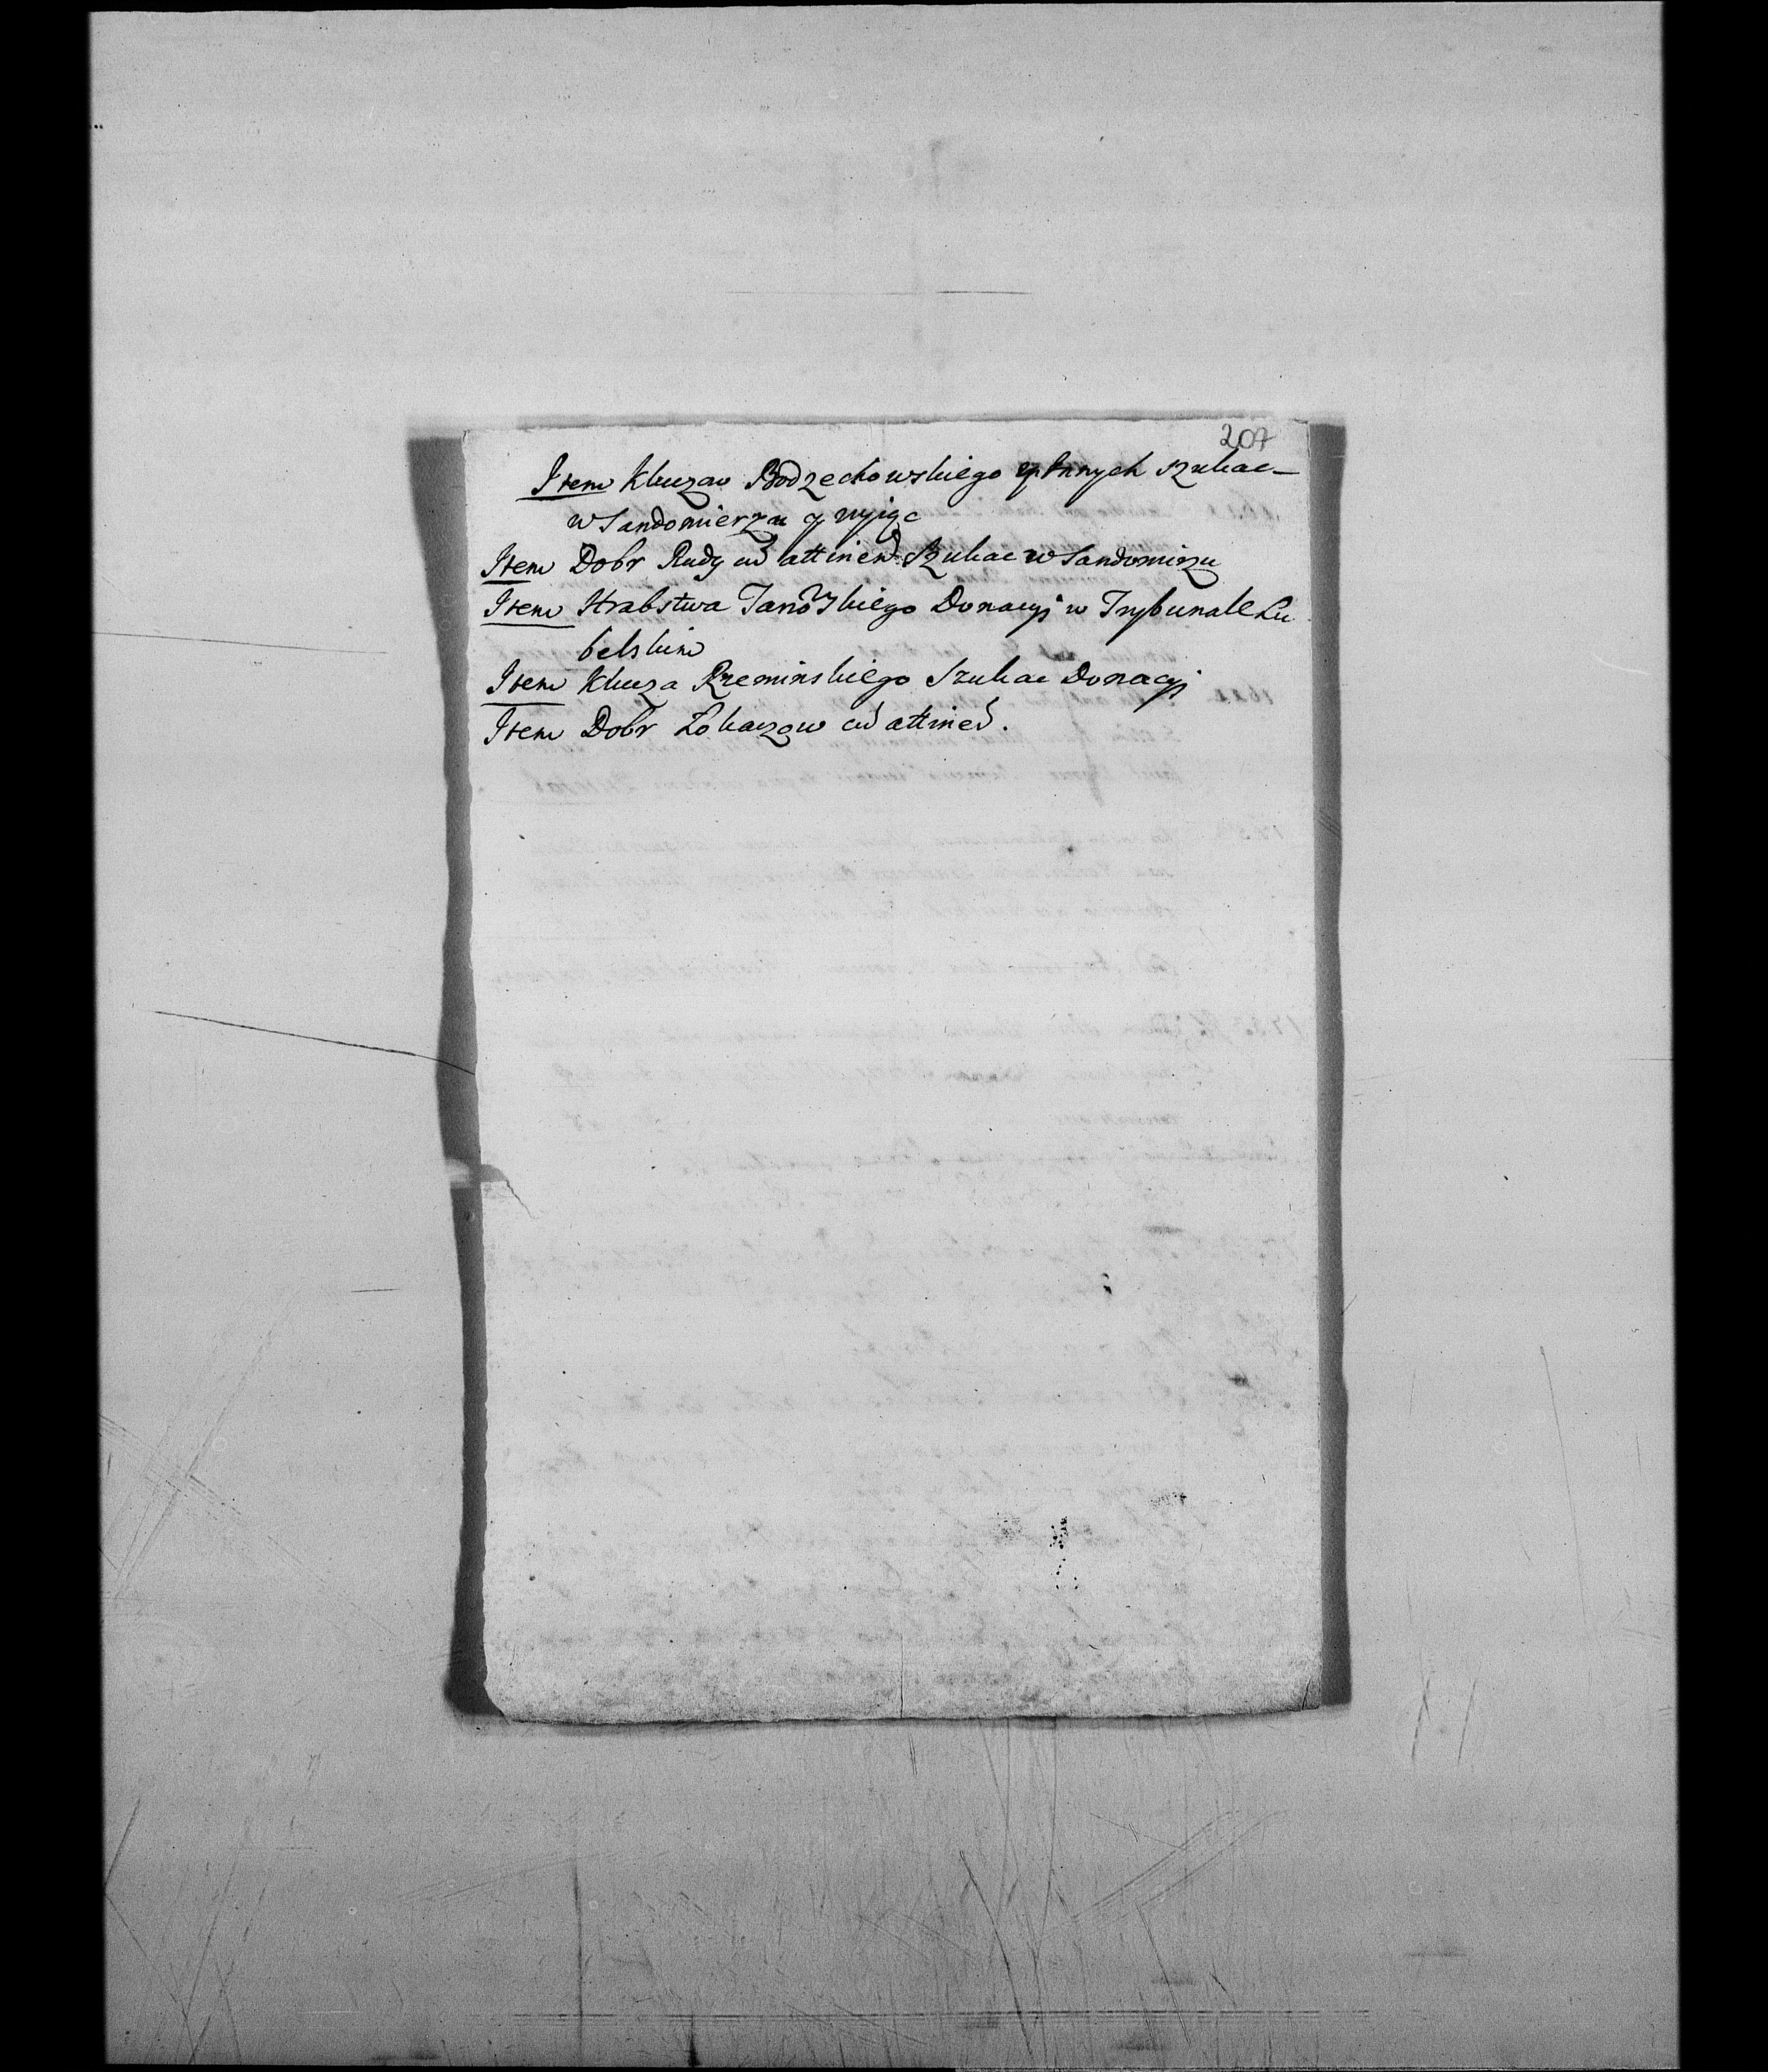 207
Item Klucza Bodzechowskiego y Innych szukac
w Sandomierzu y wyjąc
Item Dobr Rudy cū attineń. Szukac w Sandomirzu
Item Hrabstwa Tarnowskiego Donacyi w Trybunale Lu
belskim
Item Klucza Rzeminskiego Szukac Donacyi
Item Dobr Lokaczow cū attineń.